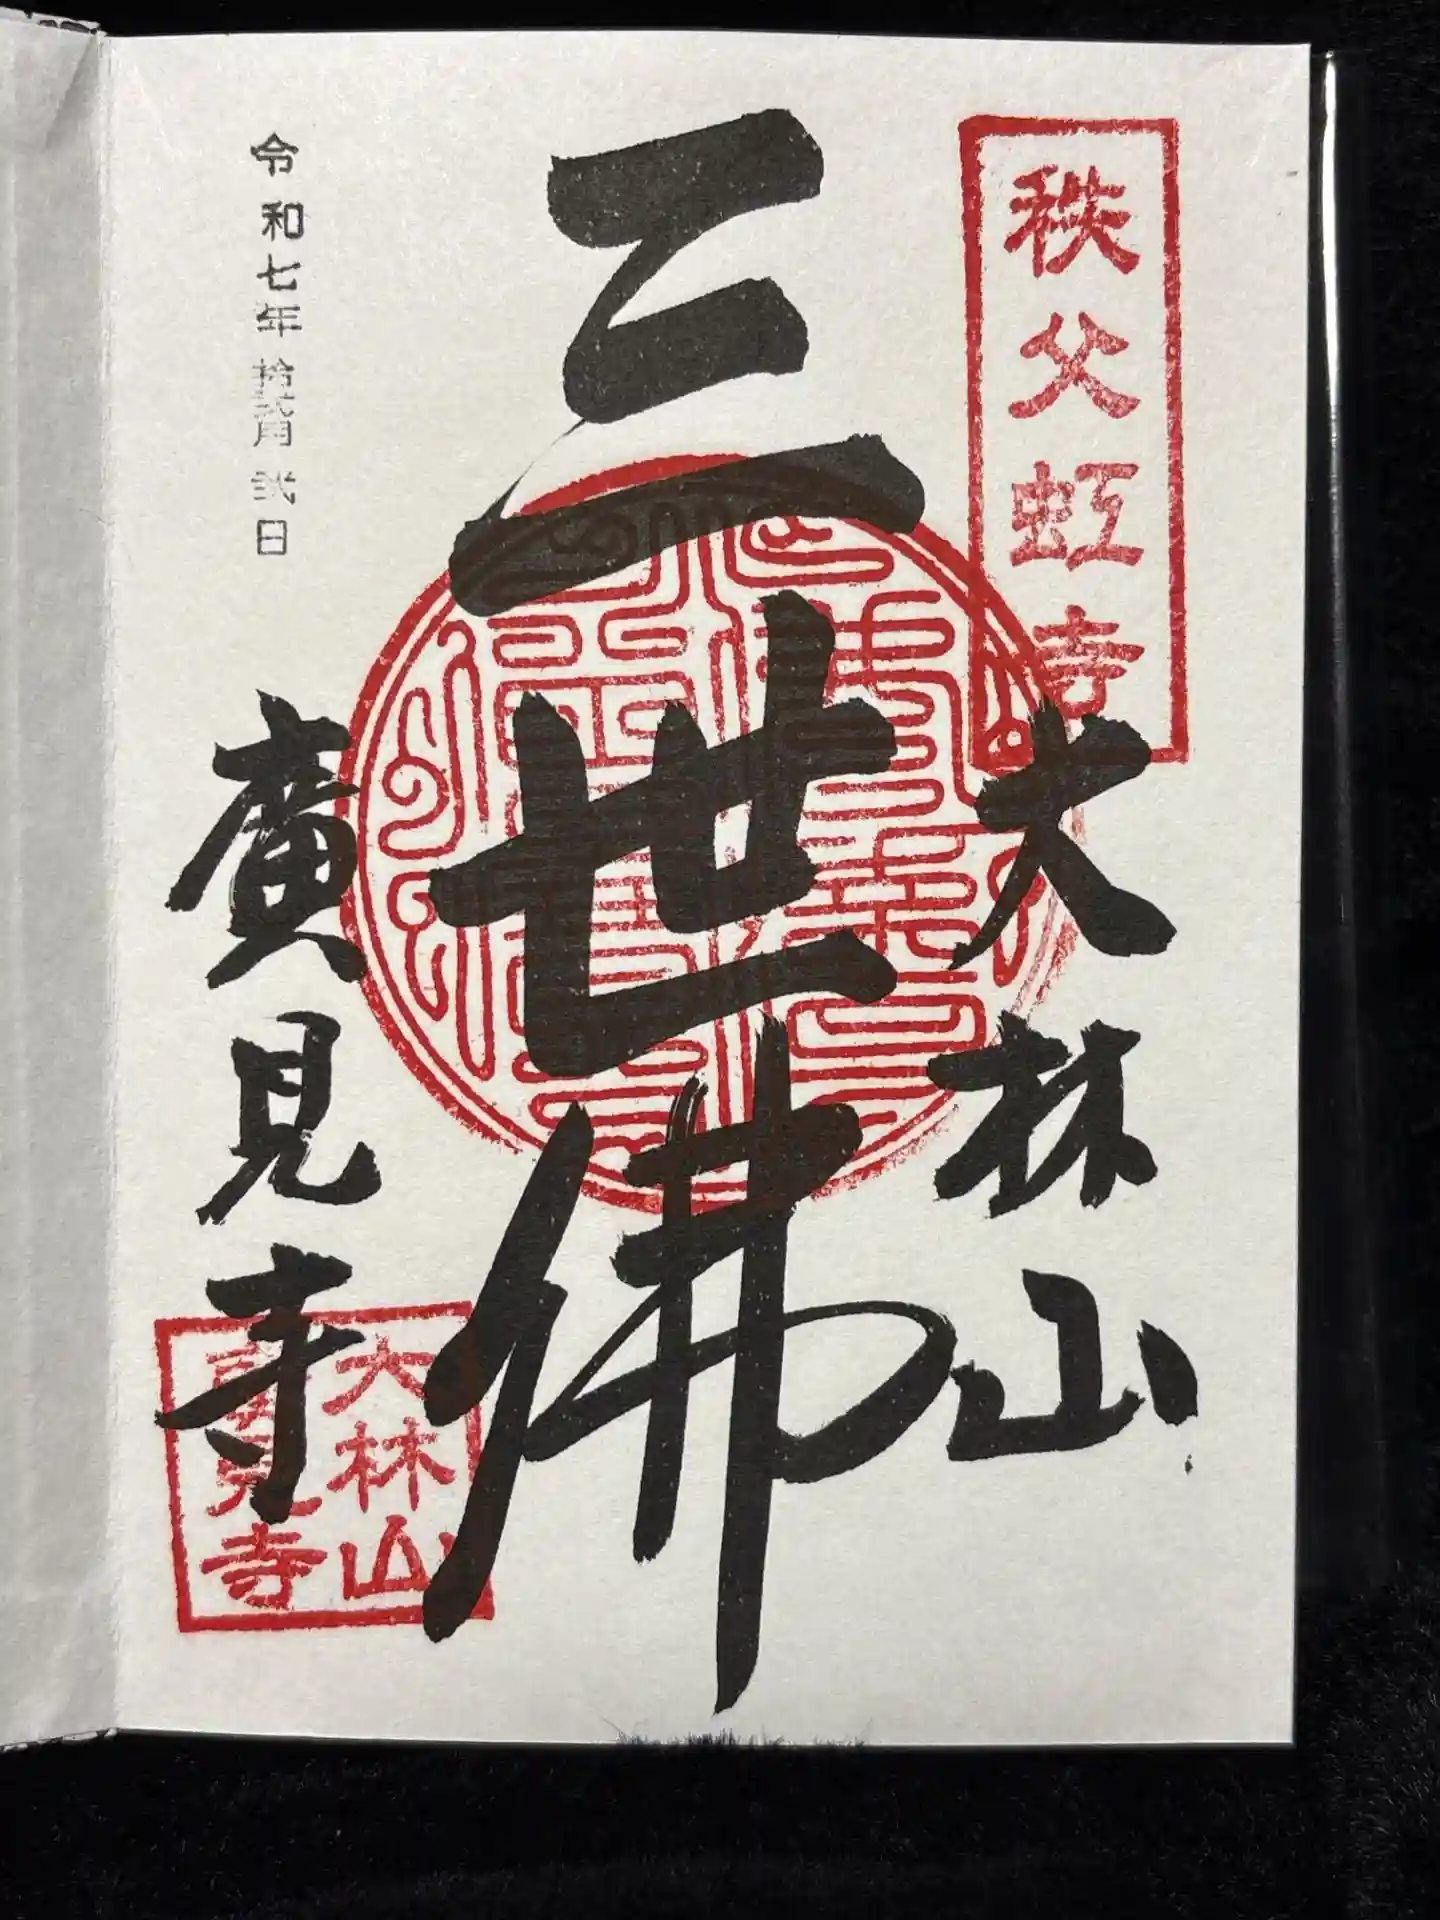 秩父虹寺
大林山
三世佛
廣見寺
令和七年拾弐月弐日
大林山
廣見寺